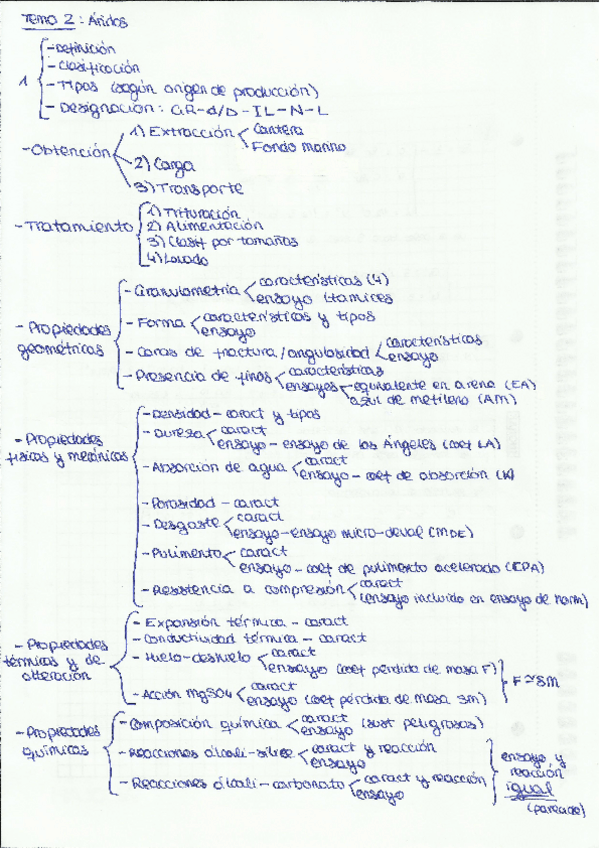 Tema 2: Áridos
1
- Definición
- Clasificación
- Tipos (según origen de producción)
- Designación: GR-d/D-IL-N-L
- Obtención
1) Extracción
Cantera
Fondo marino
2) Carga
3) Transporte
- Tratamiento
1) Trituración
2) Alimentación
3) Clasif por tamaños
4) Lavado
- Propiedades geométricas
- Granulometría
características (4)
ensayo (tamices)
- Forma
características y tipos
ensayo
- Caras de fractura/angulosidad
características
ensayo
- Presencia de finos
características
ensayos
equivalente en arena (EA)
azul de metileno (AM)
- Propiedades físicas y mecánicas
- Densidad - caract y tipos
- Dureza
caract
ensayo - ensayo de los Ángeles (coef LA)
- Absorción de agua
caract
ensayo - coef de absorción
- Porosidad - caract
- Desgaste
caract
ensayo - ensayo micro-deval (MDE)
- Pulimento
caract
ensayo - coef de pulimento acelerado (CPA)
- Resistencia a compresión
caract
(ensayo incluido en ensayo de horm)
- Propiedades térmicas y de alteración
- Expansión térmica - caract
- Conductividad térmica - caract
- Hielo-deshielo
caract
ensayo (coef pérdida de masa F)
- Acción MgSO4
caract
ensayo (coef pérdida de masa SM)
F ≅ SM
- Propiedades químicas
- Composición química
caract
ensayo (sust peligrosas)
- Reacciones álcali-sílice
caract y reacción
ensayo
- Reacciones álcali-carbonato
caract y reacción
ensayo
ensayo y
reacción
igual
(parecido)